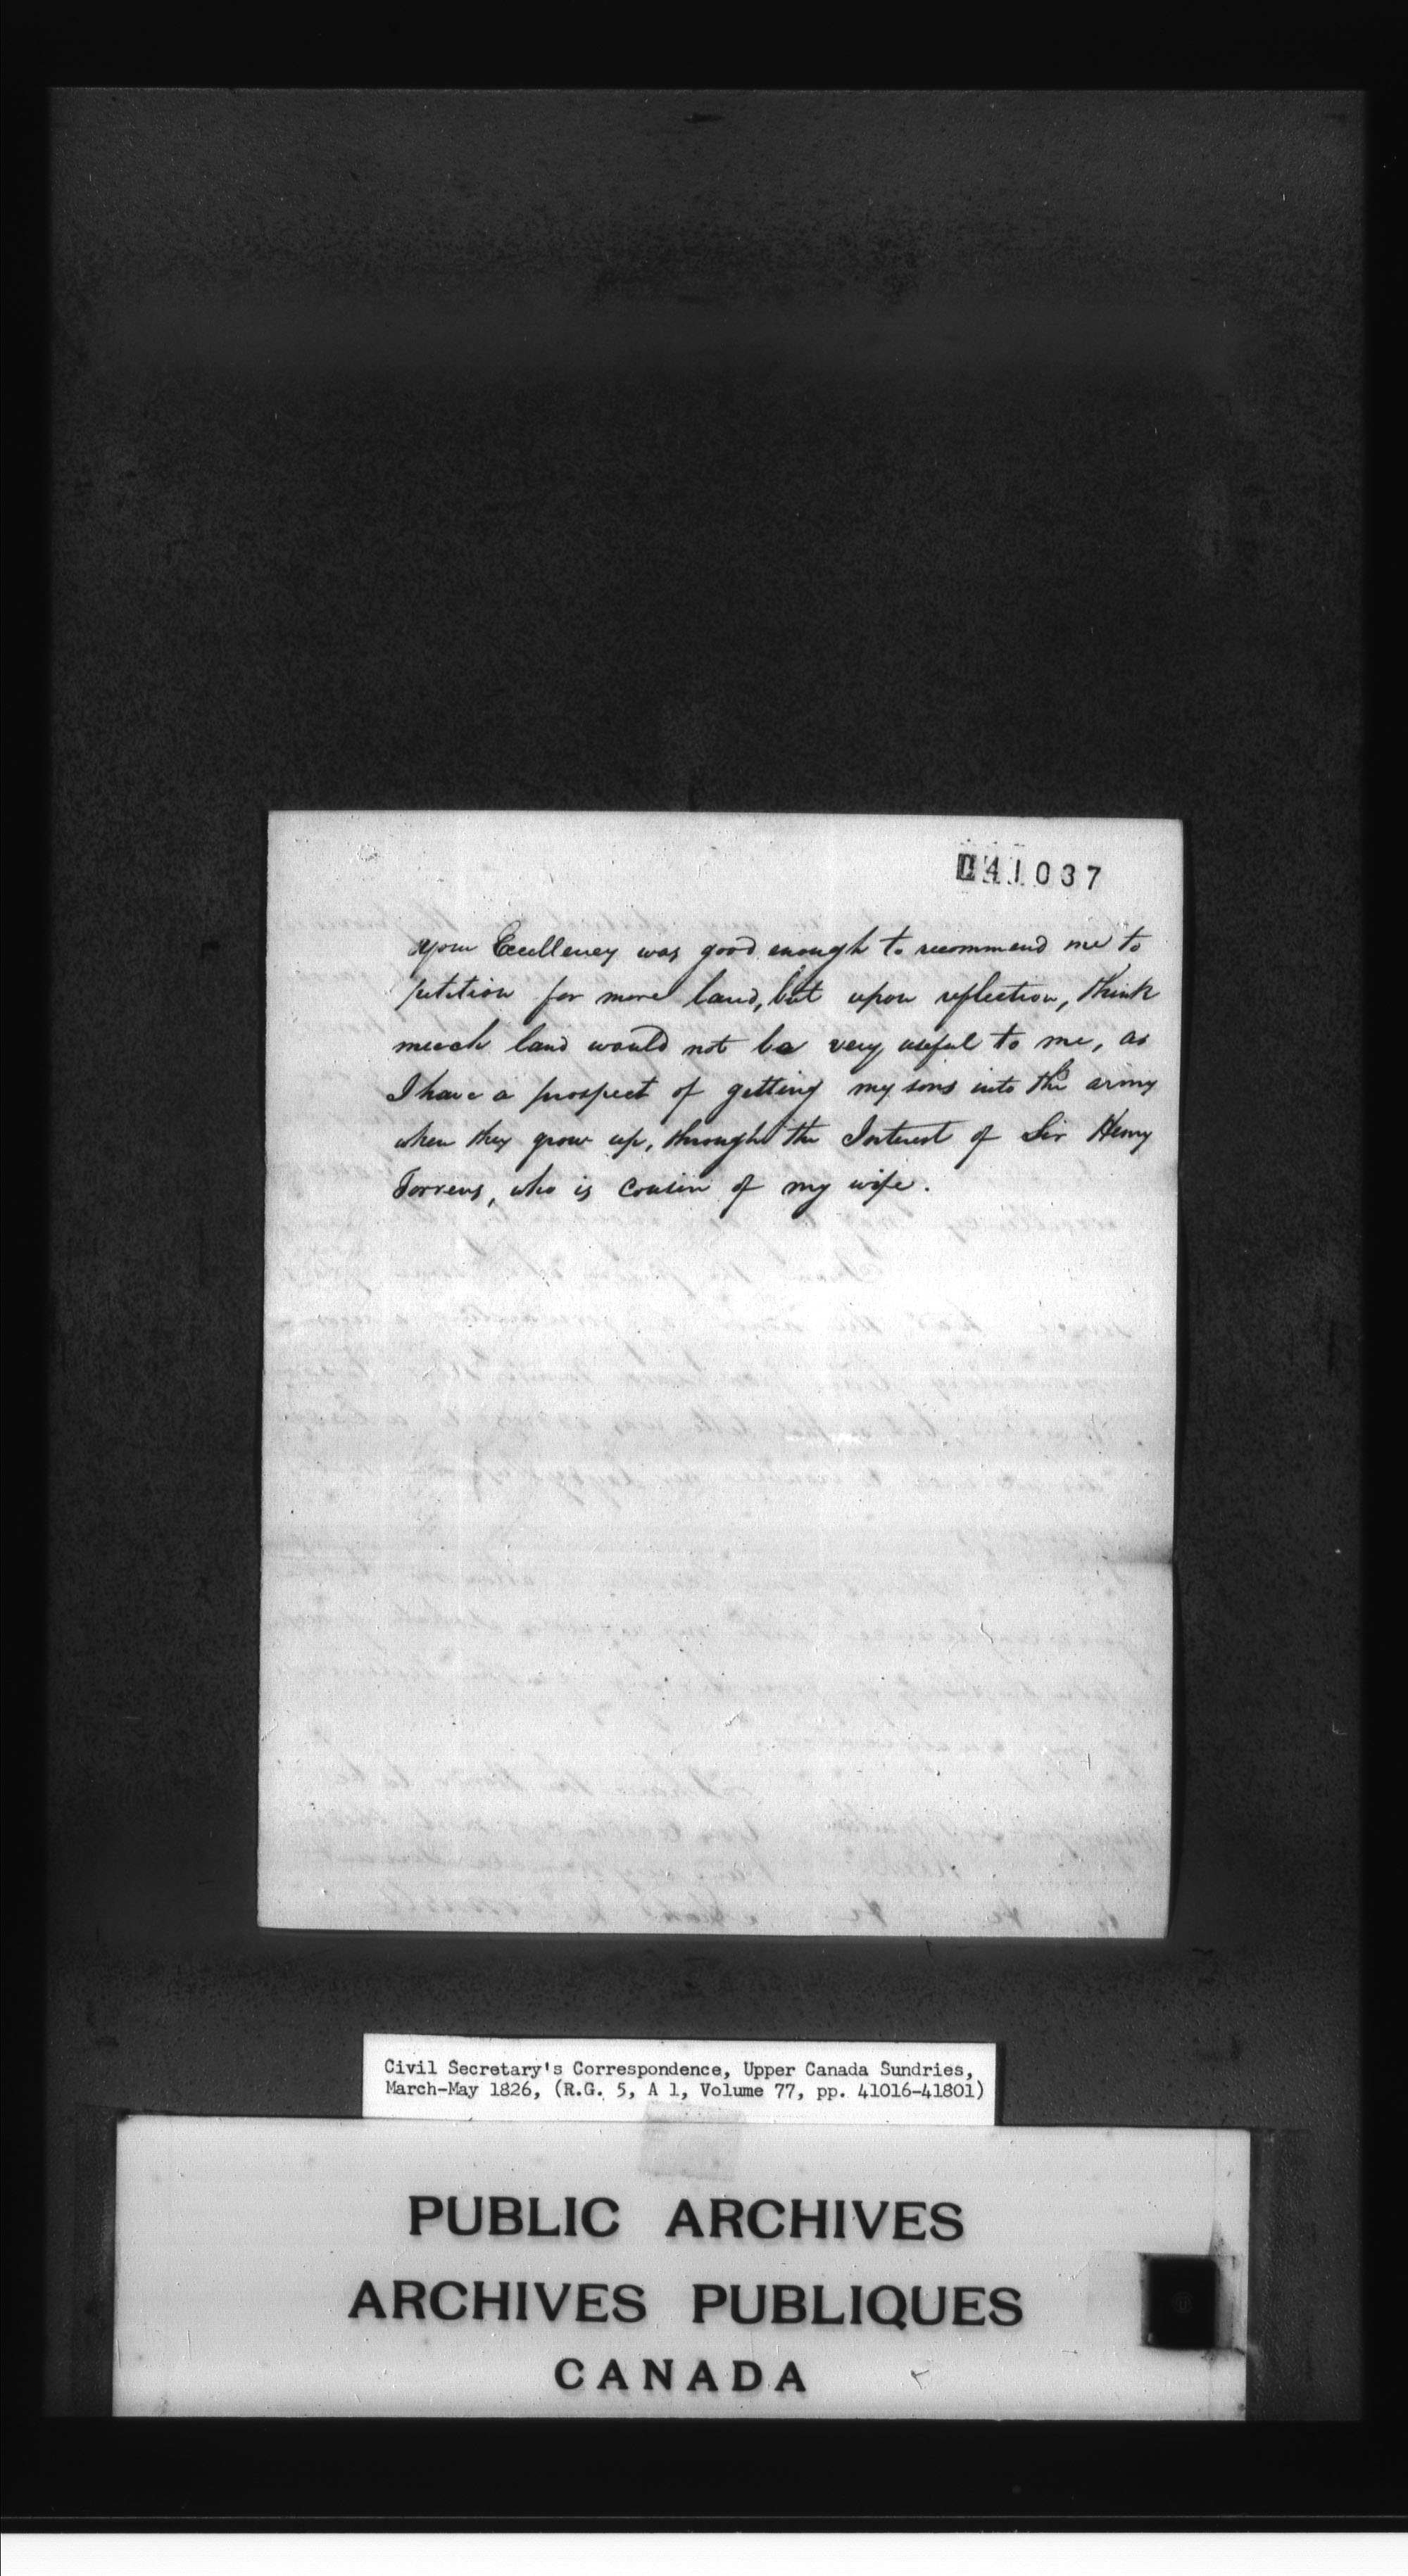 041037
your Excellency was good enough to recommend me to
petition for more land, but upon reflection, think
much land would not be very useful to me, as
I have a prospect of getting my sons into the army
when they grow up, through the Interest of Sir Henry
Torrens, who is cousin of my wife.
Civil Secretary's Correspondence, Upper Canada Sundries,
March-May 1826, (R.G. 5, A 1, Volume 77, pp. 41016-41801)
PUBLIC ARCHIVES
ARCHIVES PUBLIQUES
CANADA